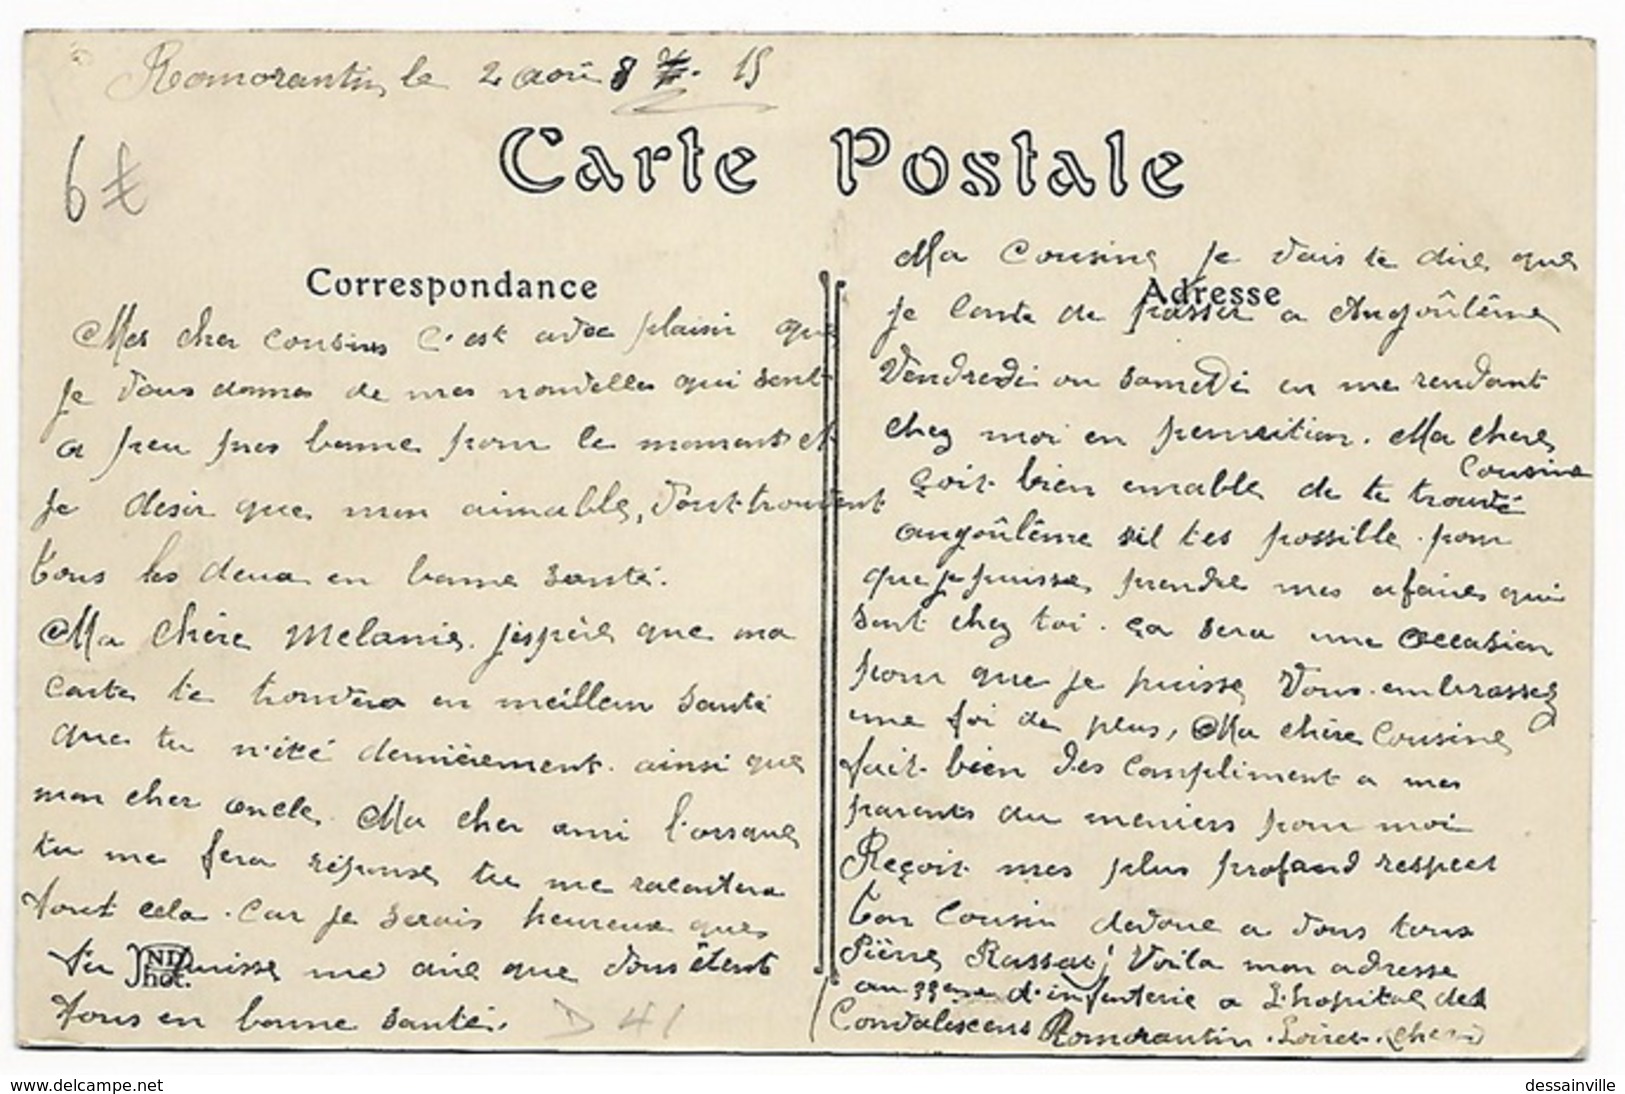 Romorantin, le 2 aoû 8 15
Carte Postale
6 €
Correspondance
Mes cher cousins c'est avec plaisir que
je vous donnes de mes nouvelles qui sont
a peu pres bonne pour le moment et
je desir que mon aimable, vont trouvent
tous les deux en bonne santé.
Ma chère Melanie. j'espère que ma
carte te trouvera en meilleur santé
que tu n'été dernièrement. ainsi que
mon cher oncle. Ma cher ami l'orsque
tu me fera réponse tu me racontera
tout cela. Car je serais heureux que
tu puisse me dire que vous étent
tous en bonne santé.
ND Phot.
D 41
Adresse
Ma Cousine je vais te dire que
je conte de passer a Angoûlême
Vendredi ou samedi en me rendant
chez moi en permition. Ma chere
Cousine
soit bien emable de te trouvé
angoûlême sil tes possible. pour
que je puisse prendre mes afaires qui
sont chez toi. ça sera une occasion
pour que je puisse vous embrassez
une foi de plus, Ma chère Cousine
fait bien des compliment a mes
parents du meniers pour moi
Reçoit mes plus profond respect
ton Cousin devoue a vous tous
Pièrre Rassat! Voila mon adresse
au d'infanterie a L'hopital des
Convalescens Romorantin. Loiret. (cher)
www.delcampe.net
dessainville